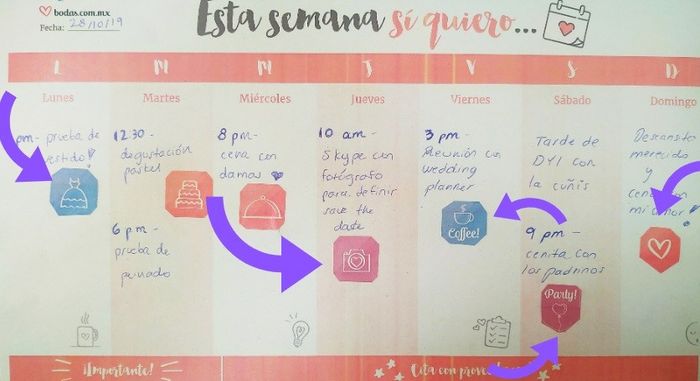 bodas.com.mx
Fecha: 28/10/19
Esta semana sí quiero...
L M M J V S D
Lunes
pm- prueba de
vestido!
Martes
12:30-
degustación
pastel
6 pm-
prueba de
peinado
Miércoles
8 pm-
cena con
damas
Jueves
10 am-
Skype con
fotógrafo
para definir
save the
date
Viernes
3 pm-
Reunión con
wedding
planner
Coffee!
Sábado
Tarde de
DYI con
la cuñis
9 pm-
cenita con
los padrinos
Party!
Domingo
Descansito
merecido
y
mi amor!
¡Importante!
Cita con